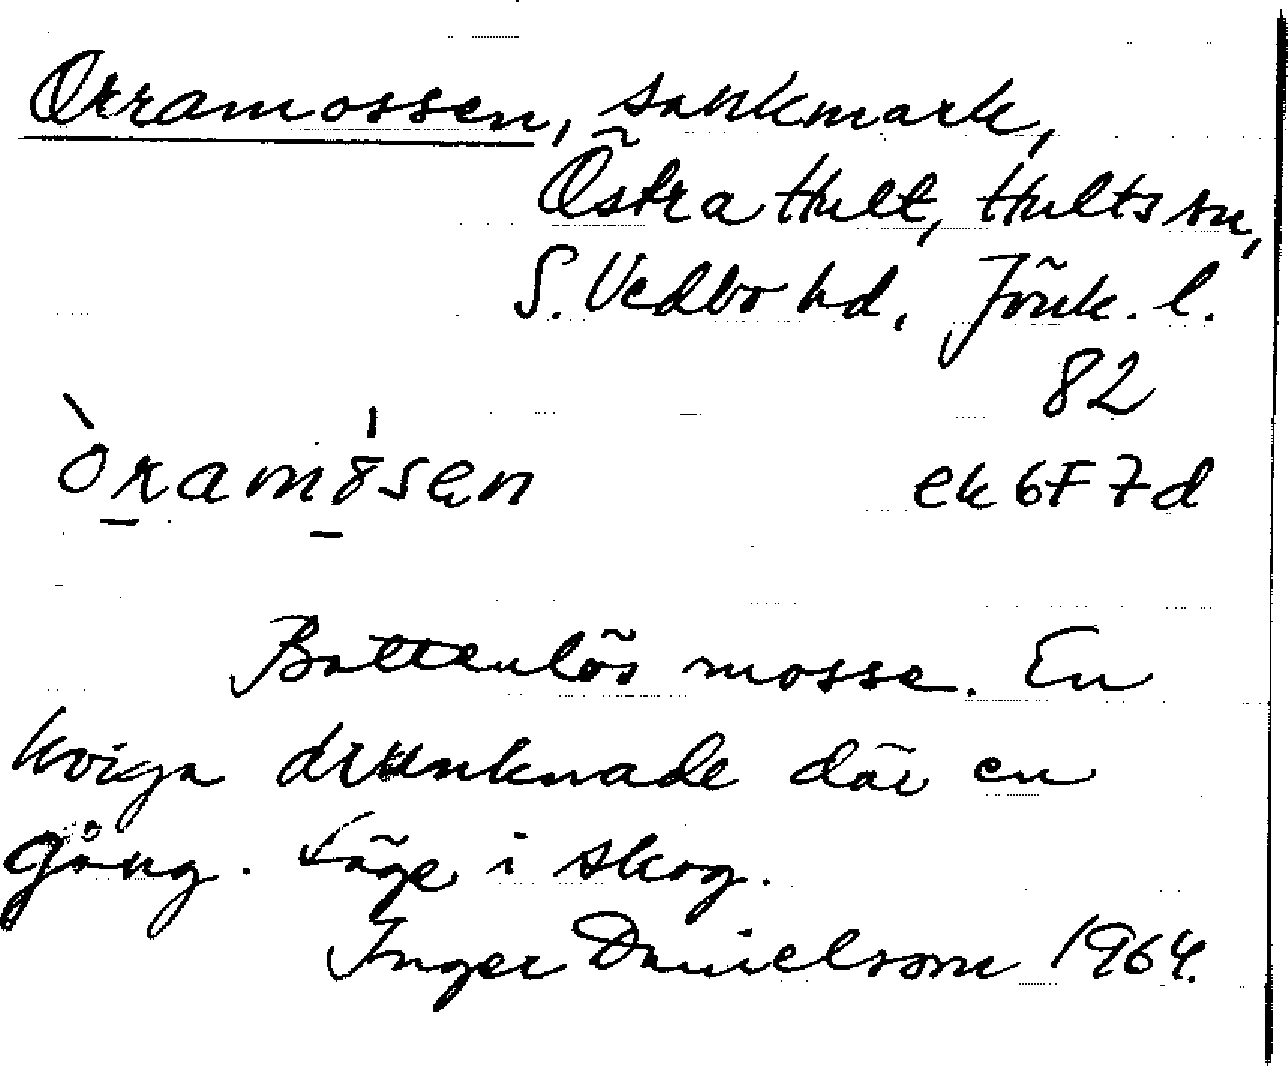 Orramossen, sankmark,
Östra Hult, Hults sn,
S. Vedbo hd, Jönk. l.
82
òramȯsen ek 6F 7d
Bottenlös mosse. En
kviga drunknade där en
gång. Läge i skog.
Inger Danielsson 1964.